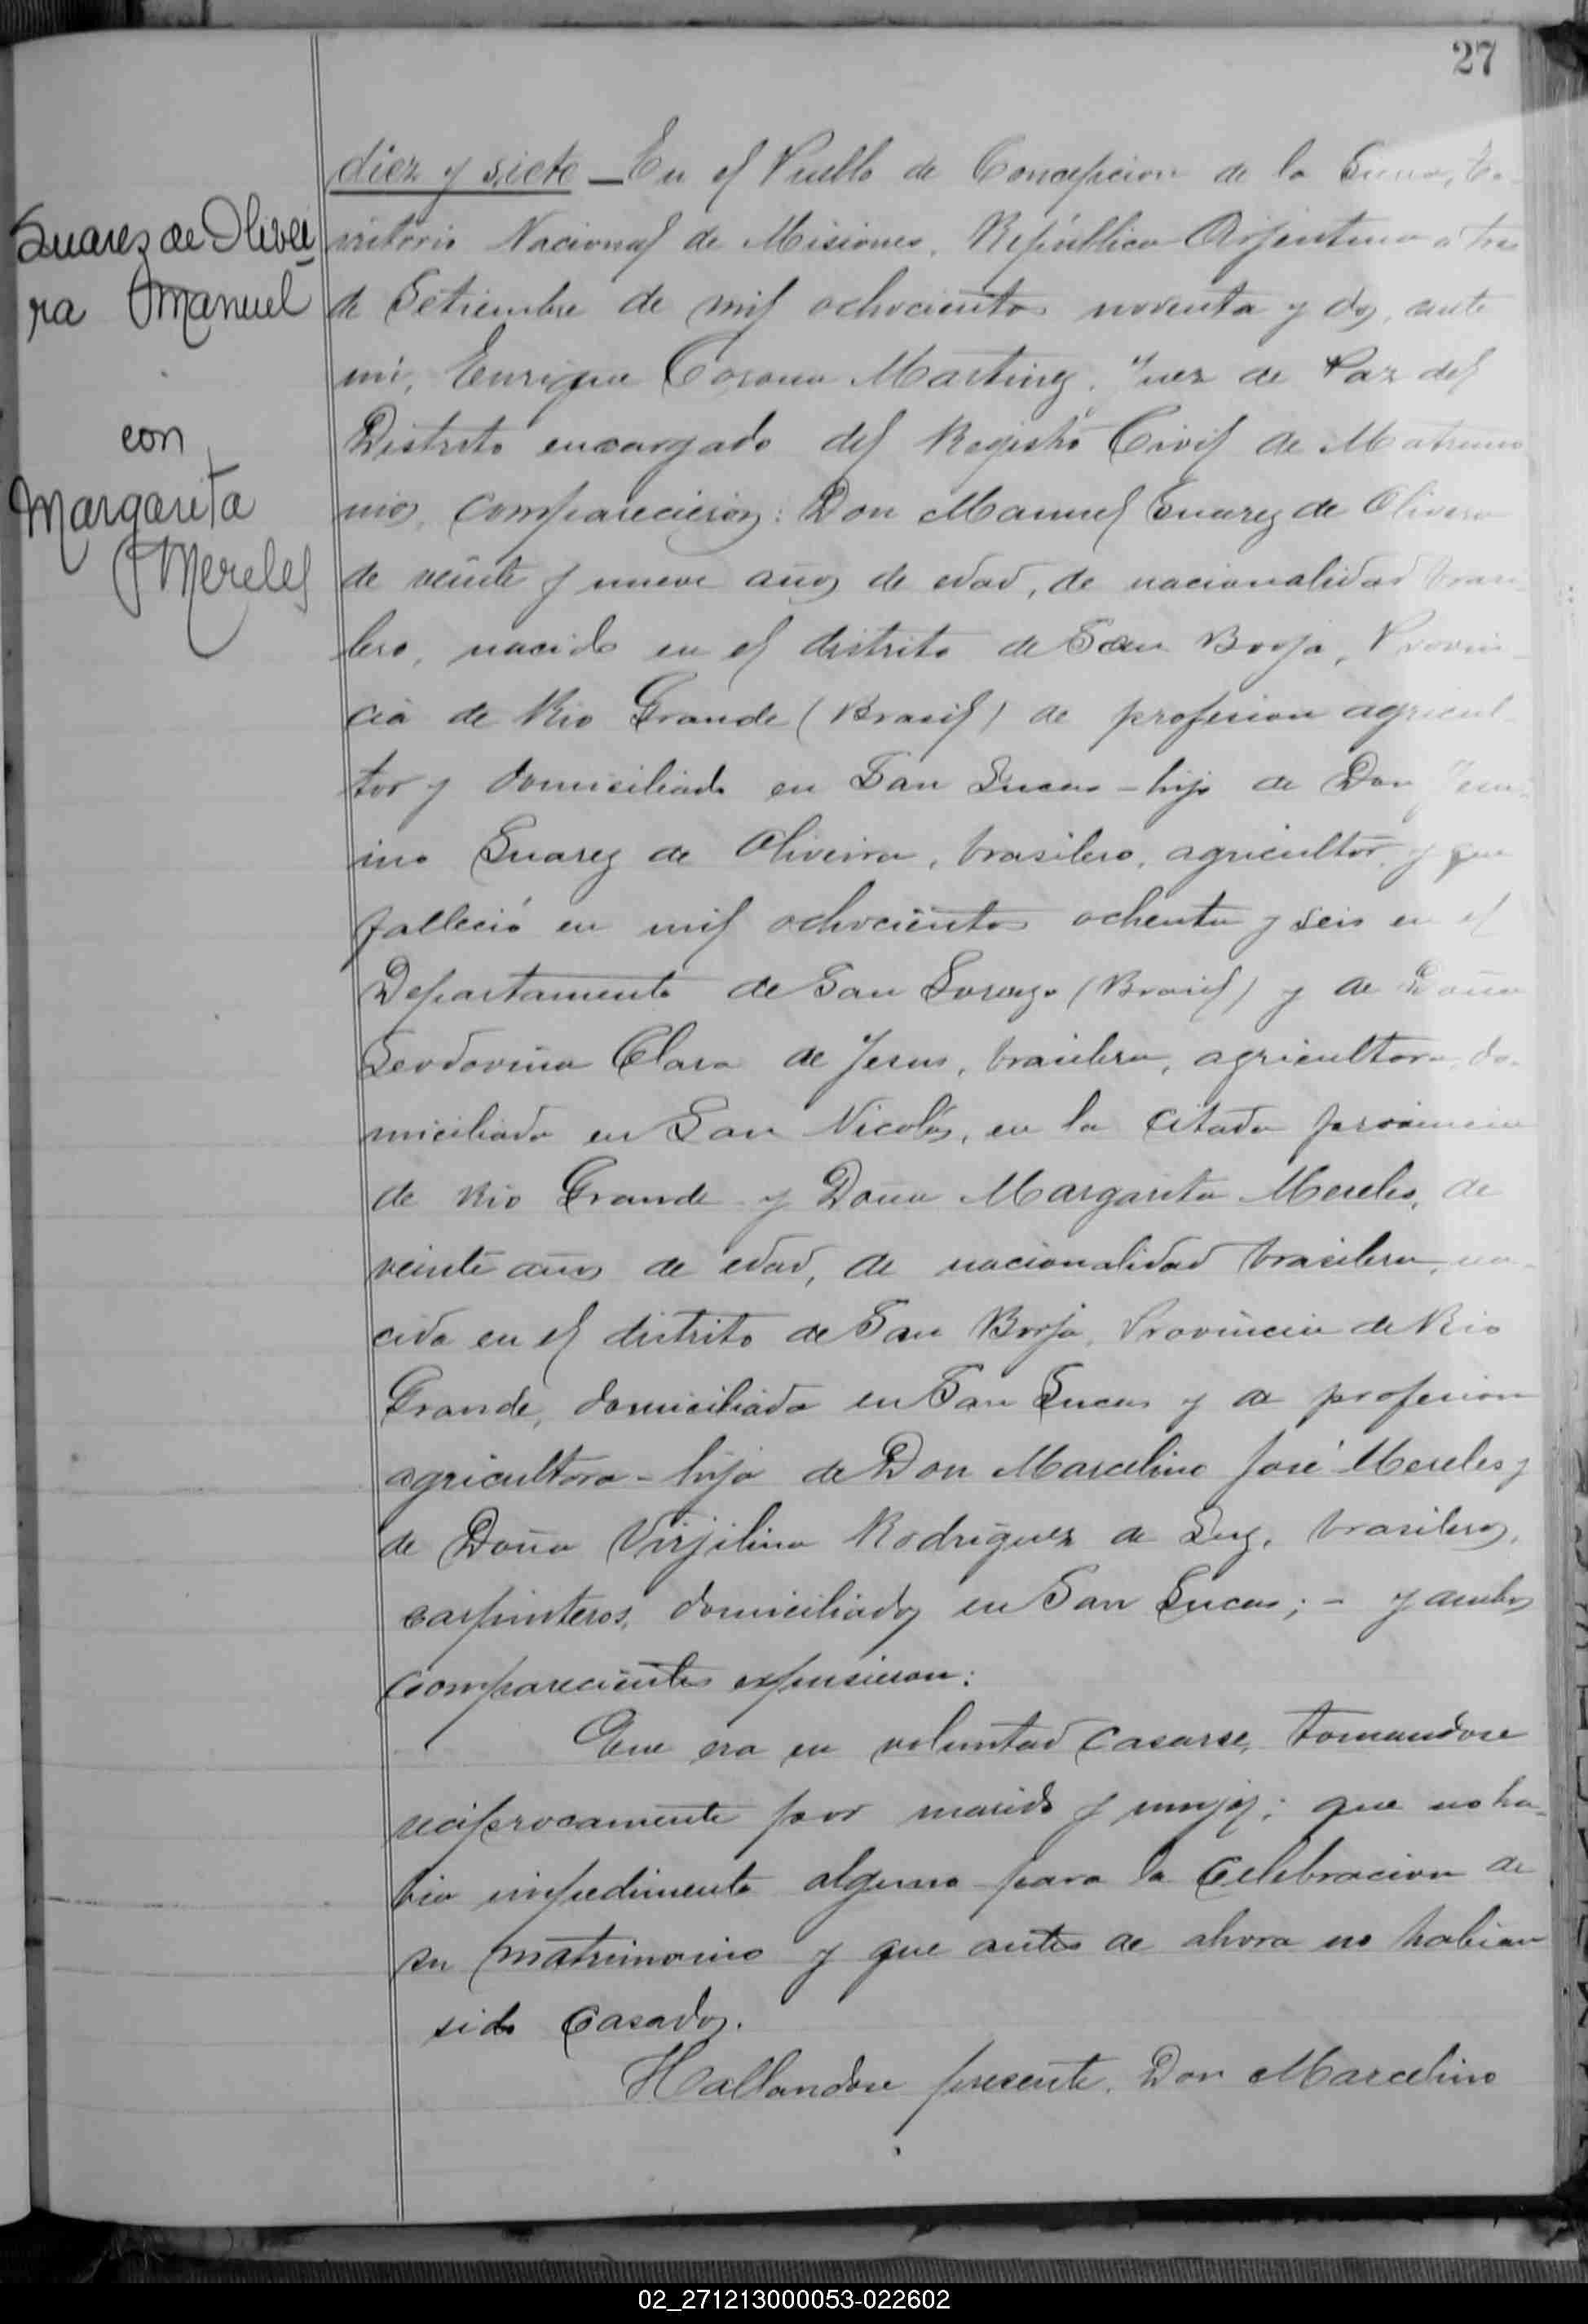 27
Suarez de Olivei
ra Manuel
con
Margarita
Mereles
diez y siete — En el Pueblo de Concepcion de la Sierra, Te-
rritorio Nacional de Misiones, República Arjentina a tres
de Setiembre de mil ochocientos noventa y dos, ante
mi, Enrique Martinez, Juez de Paz del
Distrito encargado del Registro Civil de Matrimo
nios, comparecieron: Don Manuel Suarez de Olivera
de veinte y nueve años de edad, de nacionalidad brasi
lero, nacido en el distrito de San Borja, Provin-
cia de Rio Grande (Brasil) de profesion agricul-
tor y domiciliado en San Lucas - hijo de Don
ino Suarez de Oliveira, brasilero, agricultor y que
falleció en mil ochocientos ochenta y seis en el
Departamento de San (Brasil) y de Doña
Clara de Jesus, brasilera, agricultora do-
miciliada en San Nicolás, en la citada provincia
de Rio Grande y Doña Margarita Mereles, de
veinte años de edad, de nacionalidad brasilera, na-
cida en el distrito de San Borja, Provincia de Rio
Grande, domiciliada en San Lucas y de profesion
agricultora - hija de Don Marcelino José Mereles y
de Doña Virjilina Rodriguez de Luz, brasileros,
carpinteros, domiciliados en San Lucas; - y ambos
comparecientes expusieron:
Que era su voluntad casarse, tomandose
reciprocamente por marido y mujer; que no ha-
bia impedimento alguno para la celebracion de
su matrimonio y que antes de ahora no habian
sido casados.
Hallandose presente, Don Marcelino
02_271213000053-022602